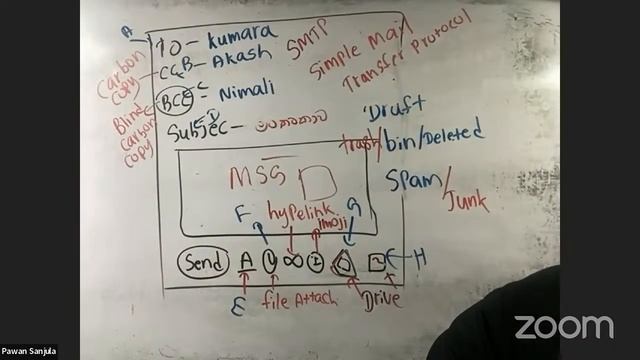 A
TO - Kumara
SMTP
Simple Mail
Transfer Protocol
Carbon
Copy
CC B - Akash
BCC C - Nimali
Blind
Carbon
Copy
Subjec D -
Draft
trash/bin/Deleted
MSG
Spam/
Junk
hypelink
imoji
F
G
Send A
H
E
file Attach
Drive
zoom
Pawan Sanjula